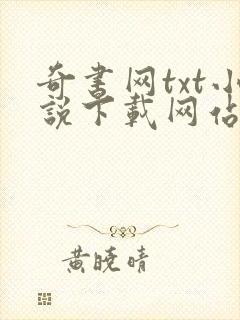 奇书网txt小
說下載网佔
黄晓晴